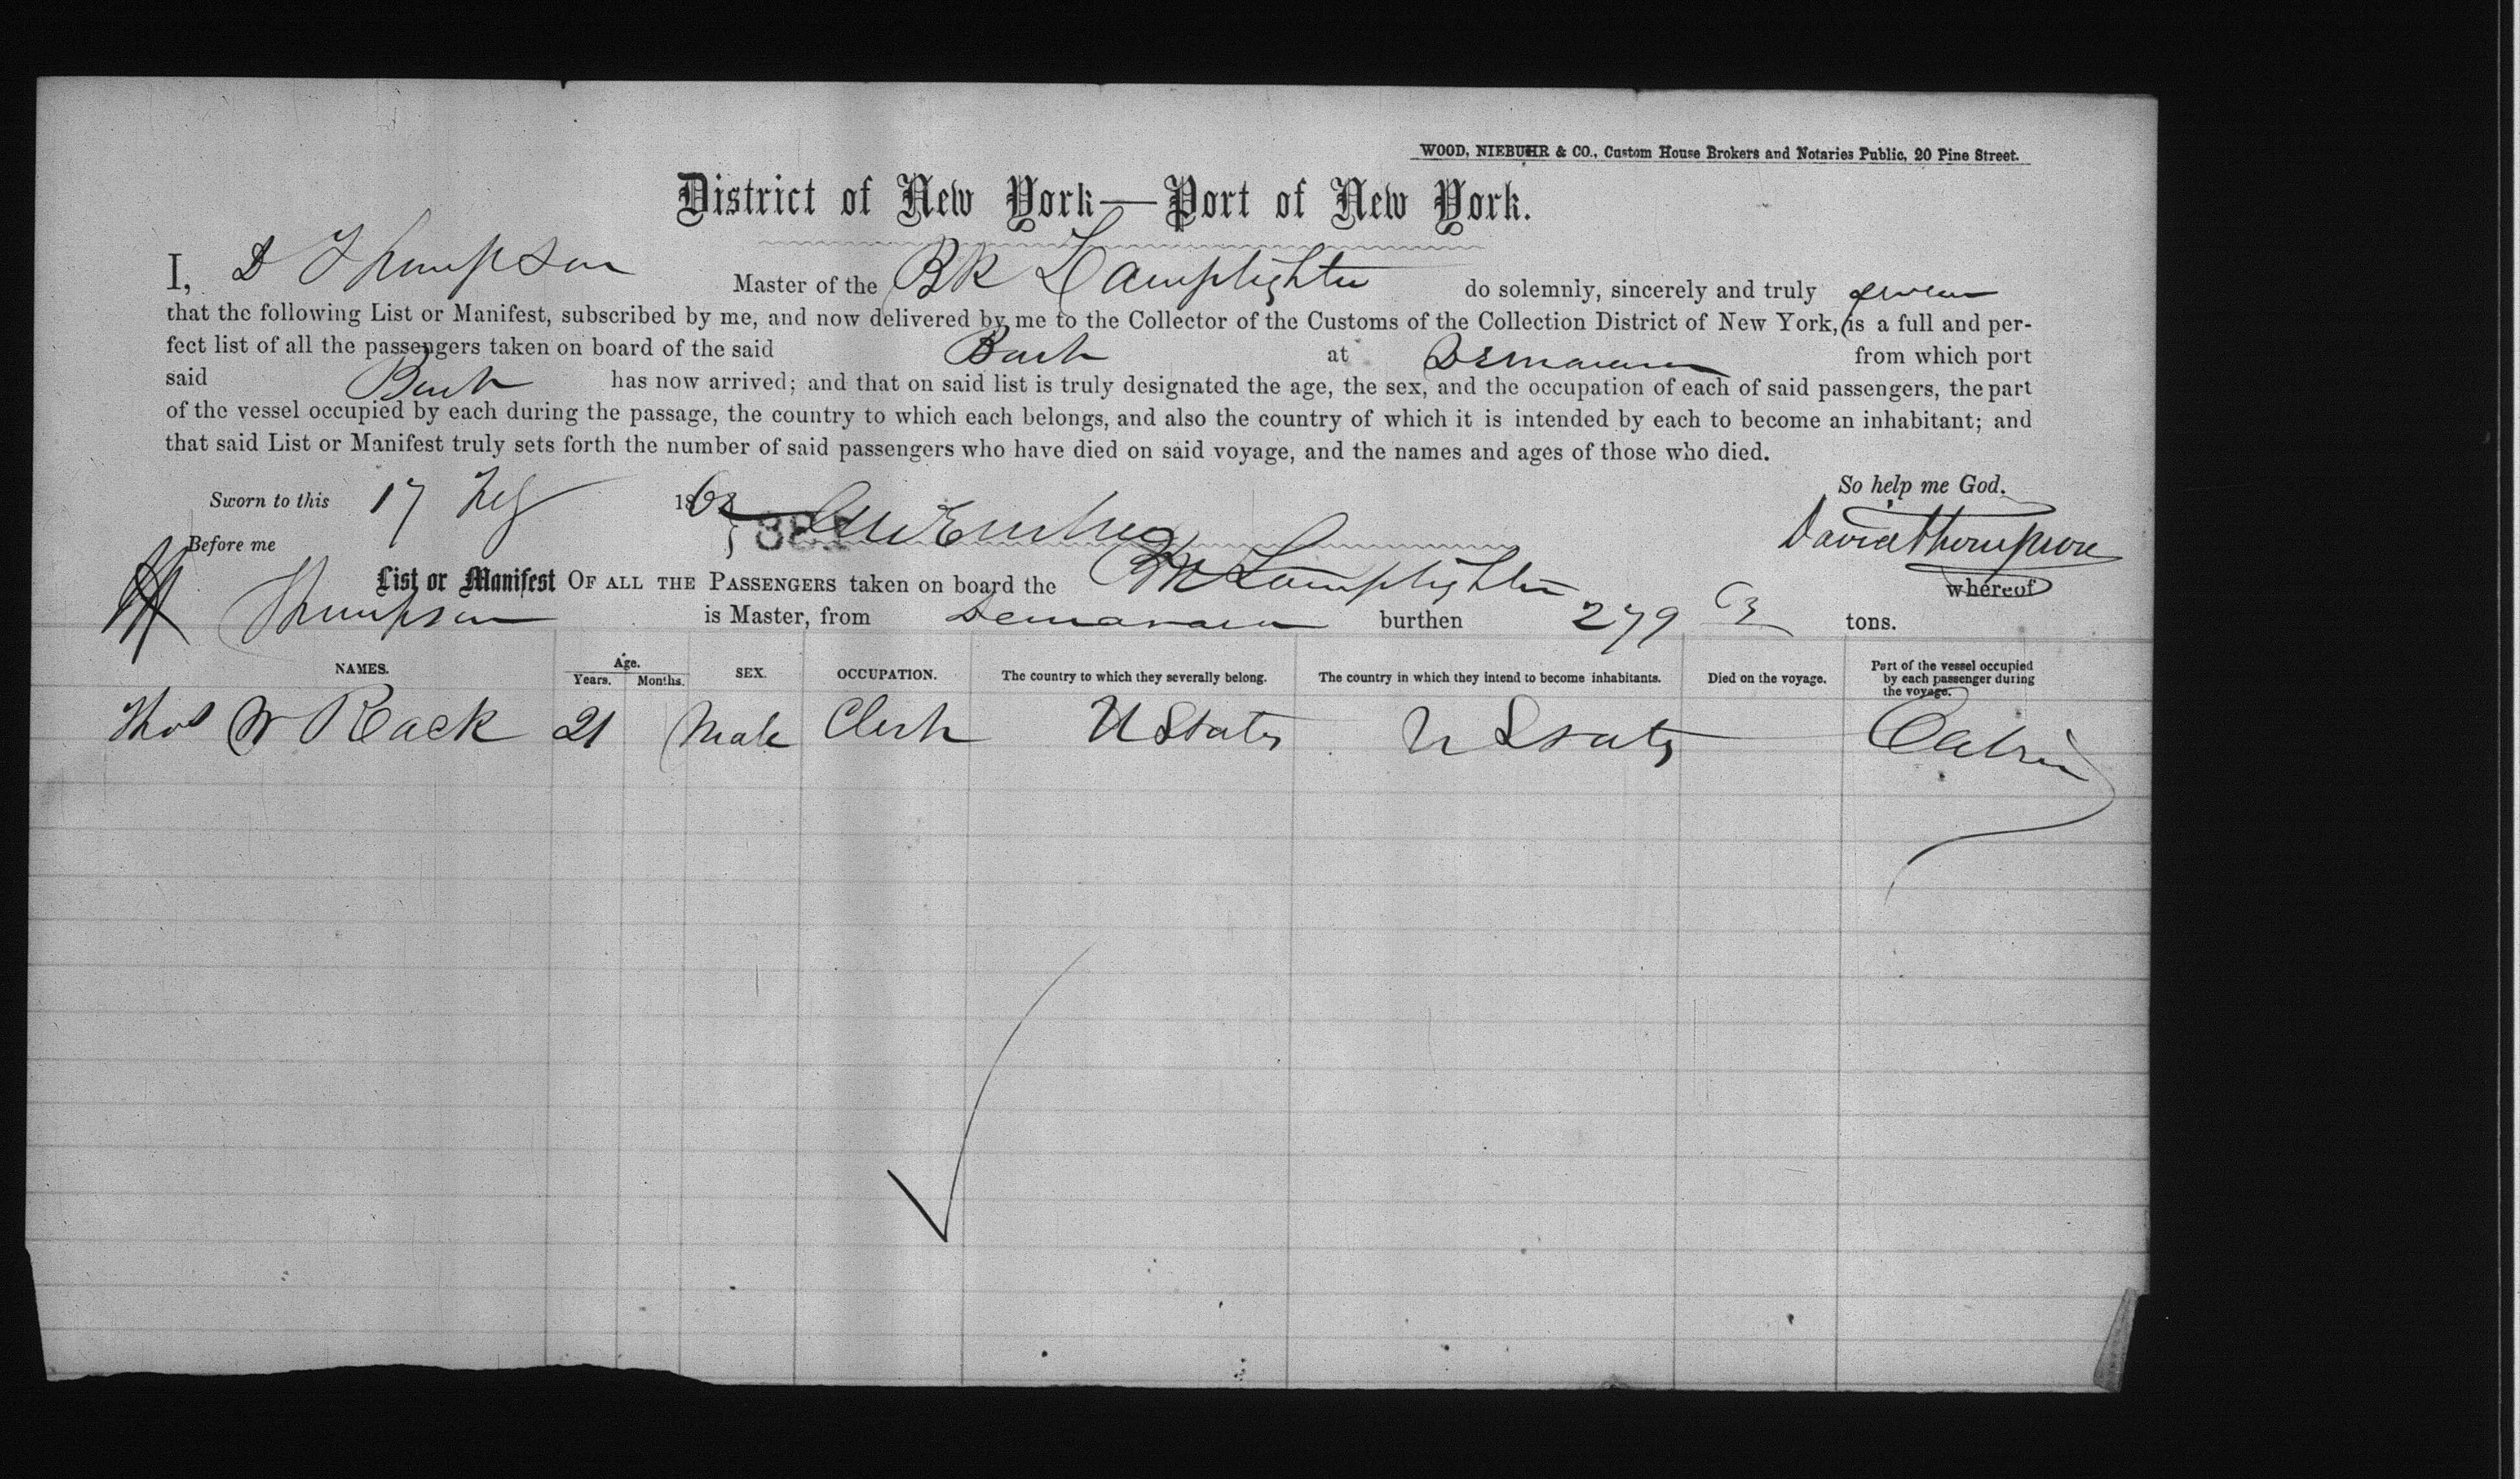 WOOD, NIEBUHR & CO., Custom House Brokers and Notaries Public, 20 Pine Street.
District of New York—Port of New York.
I, D Thompson Master of the BK Lamplighter do solemnly, sincerely and truly swear
that the following List or Manifest, subscribed by me, and now delivered by me to the Collector of the Customs of the Collection District of New York, is a full and per-
fect list of all the passengers taken on board of the said Bark at Demarara from which port
said Bark has now arrived; and that on said list is truly designated the age, the sex, and the occupation of each of said passengers, the part
of the vessel occupied by each during the passage, the country to which each belongs, and also the country of which it is intended by each to become an inhabitant; and
that said List or Manifest truly sets forth the number of said passengers who have died on said voyage, and the names and ages of those who died.
So help me God.
Sworn to this 17 Feb 186
Before me David Thompson
List or Manifest OF ALL THE PASSENGERS taken on board the BK Lamplighter whereof
Thompson is Master, from Demarara burthen 279 tons.
NAMES. Age. Years. Months. SEX. OCCUPATION. The country to which they severally belong. The country in which they intend to become inhabitants. Died on the voyage. Part of the vessel occupied by each passenger during the voyage.
Thos W Rack 21 Male Clerk U States U States Cabin